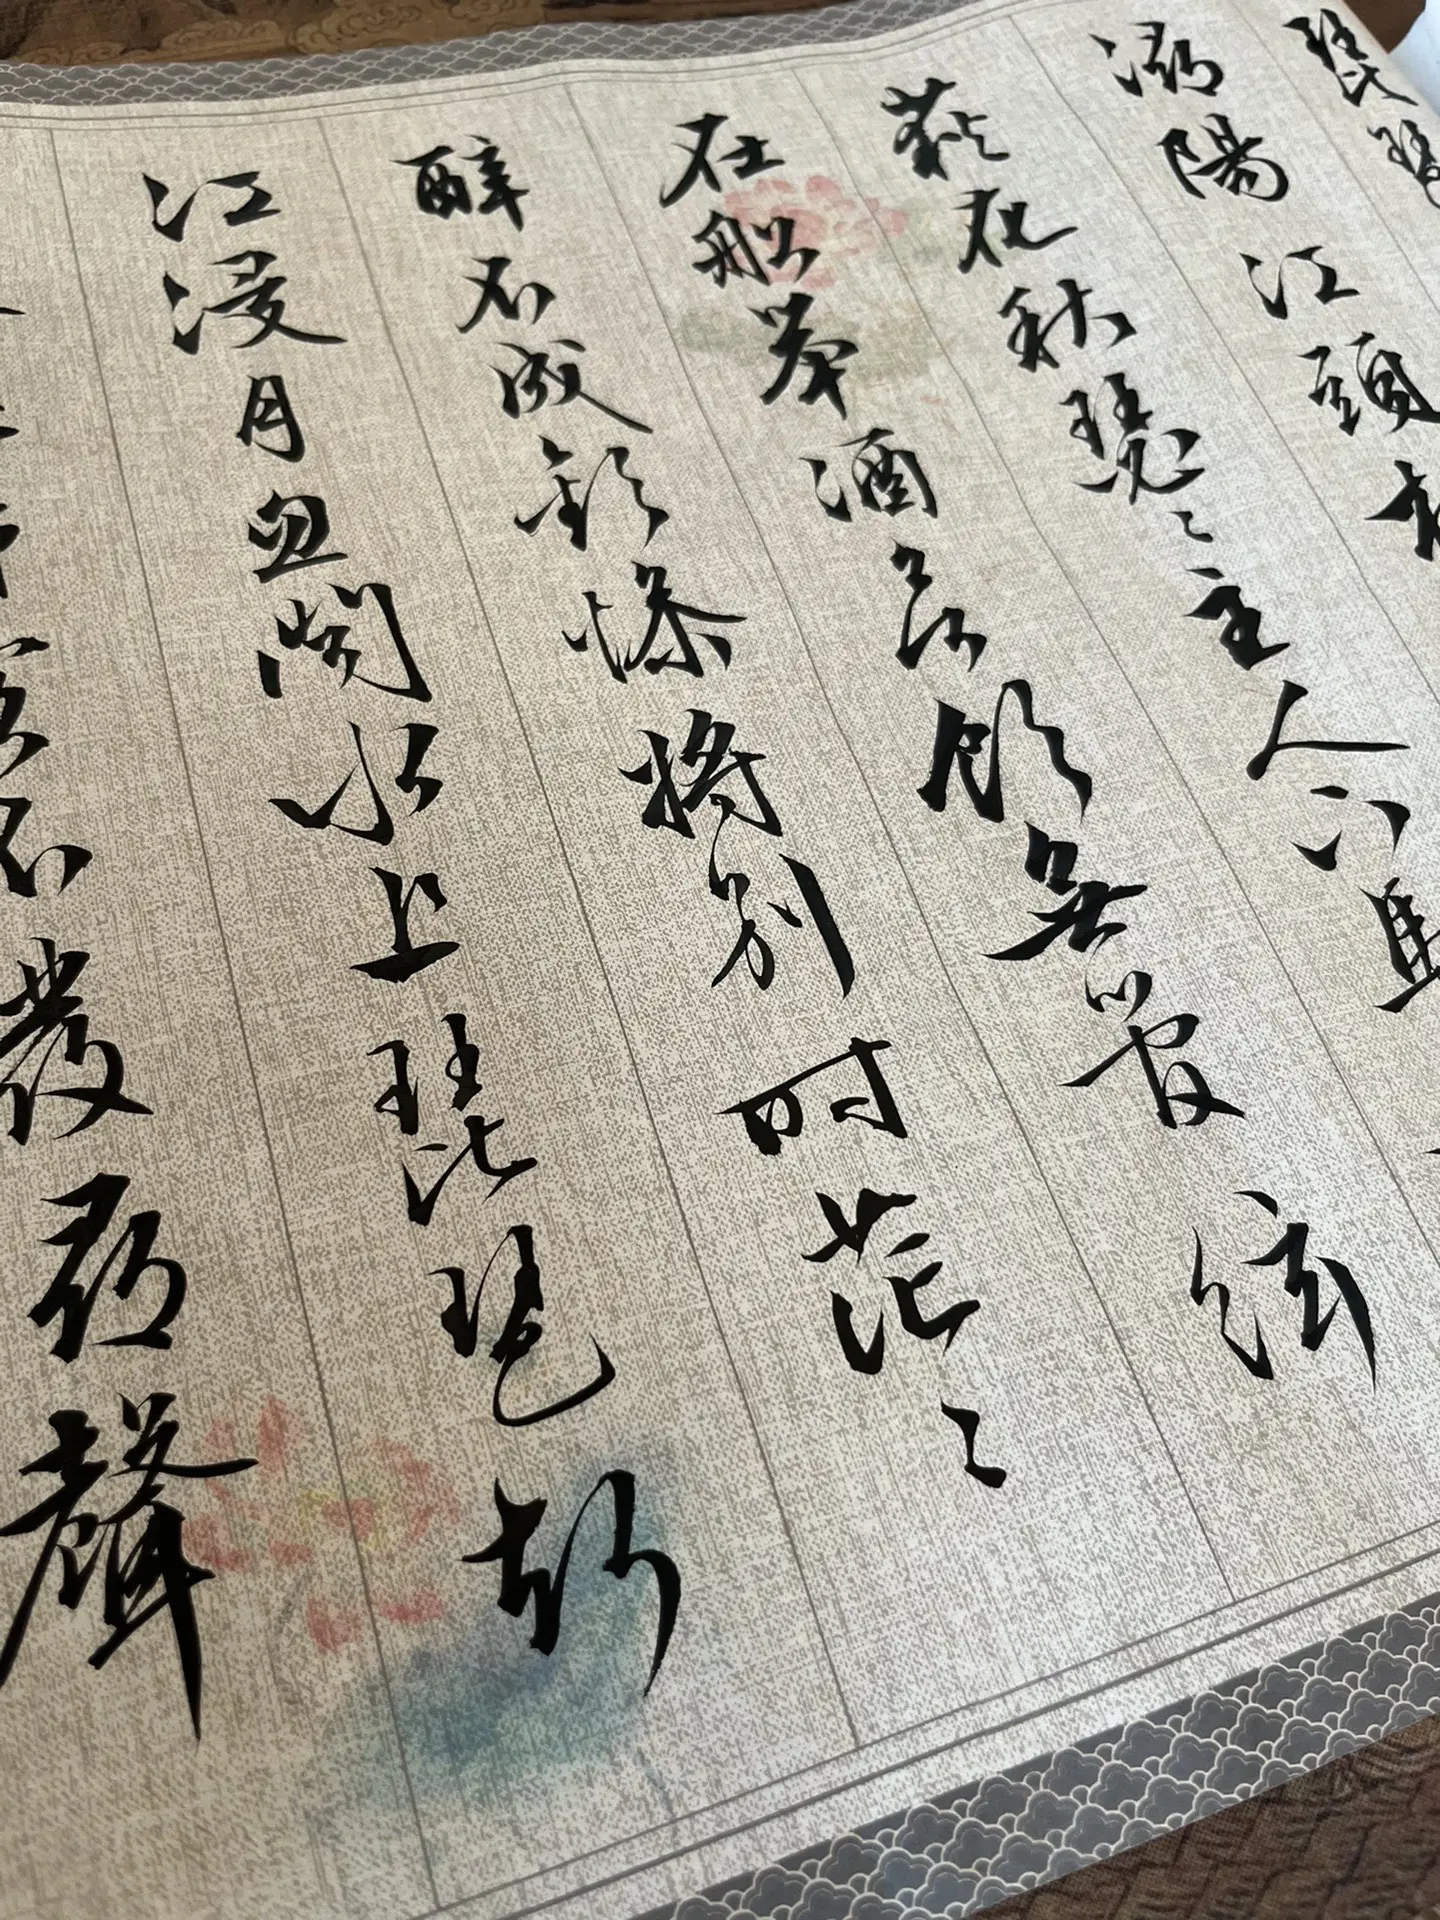 琵琶
潯陽江頭
荻花秋瑟〻主人下馬
在船舉酒欲飲無管絃
醉不成歡慘將別時茫〻
江浸月忽聞水上琵琶聲
客不發尋聲